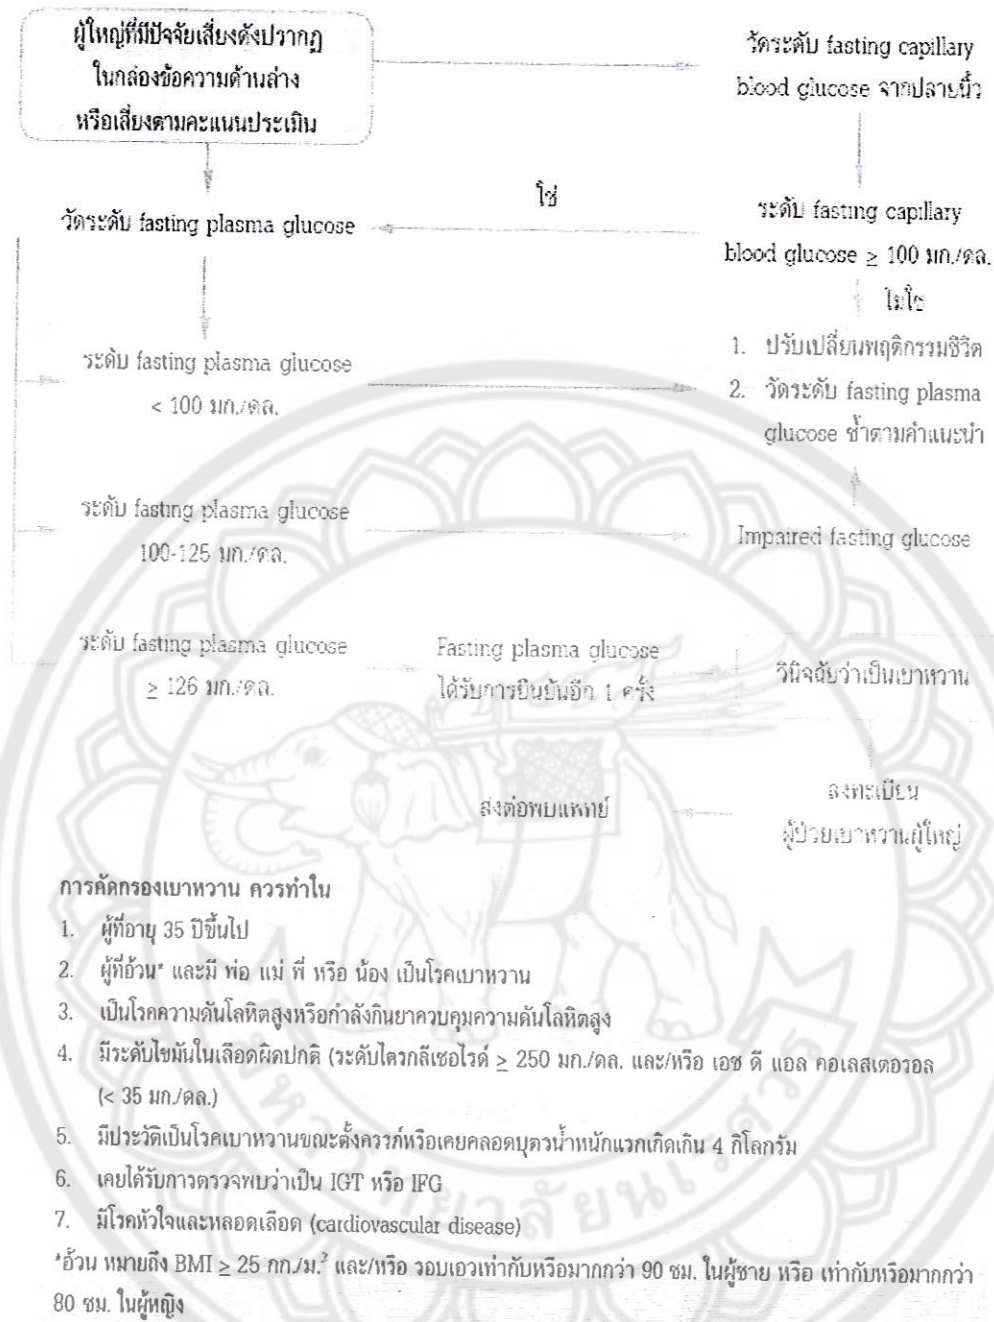 ผู้ใหญ่ที่มีปัจจัยเสี่ยงดังปรากฏ
ในกล่องข้อความด้านล่าง
หรือเสี่ยงตามคะแนนประเมิน
วัดระดับ fasting capillary
blood glucose จากปลายนิ้ว
วัดระดับ fasting plasma glucose
ใช่
ระดับ fasting capillary
blood glucose ≥ 100 มก./ดล.
ไม่ใช่
ระดับ fasting plasma glucose
< 100 มก./ดล.
1. ปรับเปลี่ยนพฤติกรรมชีวิต
2. วัดระดับ fasting plasma
glucose ซ้ำตามคำแนะนำ
ระดับ fasting plasma glucose
100-125 มก./ดล.
Impaired fasting glucose
ระดับ fasting plasma glucose
≥ 126 มก./ดล.
Fasting plasma glucose
ได้รับการยืนยันอีก 1 ครั้ง
วินิจฉัยว่าเป็นเบาหวาน
ส่งต่อพบแพทย์
ลงทะเบียน
ผู้ป่วยเบาหวานผู้ใหญ่
การคัดกรองเบาหวาน ควรทำใน
1. ผู้ที่อายุ 35 ปีขึ้นไป
2. ผู้ที่อ้วน* และมี พ่อ แม่ พี่ หรือ น้อง เป็นโรคเบาหวาน
3. เป็นโรคความดันโลหิตสูงหรือกำลังกินยาควบคุมความดันโลหิตสูง
4. มีระดับไขมันในเลือดผิดปกติ (ระดับไตรกลีเซอไรด์ ≥ 250 มก./ดล. และ/หรือ เอช ดี แอล คอเลสเตอรอล
(< 35 มก./ดล.)
5. มีประวัติเป็นโรคเบาหวานขณะตั้งครรภ์หรือเคยคลอดบุตรน้ำหนักแรกเกิดเกิน 4 กิโลกรัม
6. เคยได้รับการตรวจพบว่าเป็น IGT หรือ IFG
7. มีโรคหัวใจและหลอดเลือด (cardiovascular disease)
*อ้วน หมายถึง BMI ≥ 25 กก./ม.² และ/หรือ รอบเอวเท่ากับหรือมากกว่า 90 ซม. ในผู้ชาย หรือ เท่ากับหรือมากกว่า
80 ซม. ในผู้หญิง
มหาวิทยาลัยนเรศวร